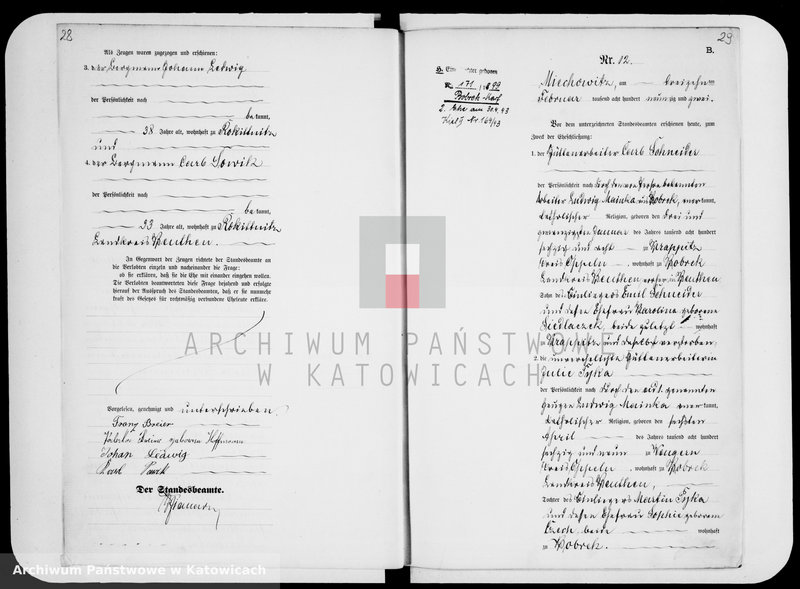 28
Als Zeugen waren zugezogen und erschienen:
3. der Bergmann Johann Ledwig
der Persönlichkeit nach
be kannt,
38 Jahre alt, wohnhaft zu Rokittnitz
und
4. der Bergmann Carl
der Persönlichkeit nach
be kannt,
33 Jahre alt, wohnhaft zu Rokittnitz
Landkreis Beuthen.
In Gegenwart der Zeugen richtete der Standesbeamte an
die Verlobten einzeln und nacheinander die Frage:
ob sie erklären, daß sie die Ehe mit einander eingehen wollen.
Die Verlobten beantworteten diese Frage bejahend und erfolgte
hierauf der Ausspruch des Standesbeamten, daß er sie nunmehr
kraft des Gesetzes für rechtmäßig verbundene Eheleute erkläre.
Vorgelesen, genehmigt und unterschrieben.
Franz Breier
geborene
Johan Ledwig
Karl
Der Standesbeamte.
29
B.
Nr. 12.
geboren
№ 171 1899
Bobrek-Karf
2. Ehe am 43
Nr.
Miechowitz, am dreizehnten
Februar tausend acht hundert neunzig und zwei.
Vor dem unterzeichneten Standesbeamten erschienen heute, zum
Zweck der Eheschließung:
1. der Hüttenarbeiter Carl Schneider
der Persönlichkeit nach durch den von Person bekannten
Arbeiter Ludwig Mainka in Bobrek, aner kannt,
katholischer Religion, geboren den drei und
zwanzigsten Januar des Jahres tausend acht hundert
sechzig und acht zu
Kreis Oppeln, wohnhaft zu Bobrek
Landkreis Beuthen
Sohn des Einliegers Emil Schneider
und dessen Ehefrau Karolina geborene
Siedlaczek, beide zuletzt wohnhaft
zu und daselbst verstorben.
2. die unverehelichte Hüttenarbeiterin
Julie Fyka
der Persönlichkeit nach durch den ad 1. genannten
Zeugen Ludwig Mainka aner kannt,
katholischer Religion, geboren den sechsten
April des Jahres tausend acht hundert
sechzig und neun zu
Kreis Oppeln, wohnhaft zu Bobrek
Landkreis Beuthen,
Tochter des Einliegers Martin Fyka
und dessen Ehefrau Sophie geborene
beide wohnhaft
zu Bobrek.
ARCHIWUM PAŃSTWOWE
W KATOWICACH
Archiwum Państwowe w Katowicach